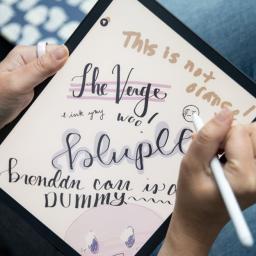 This is not
arms!
The Verge
i ink you woo!
bluple
brendan carr is a
DUMMY